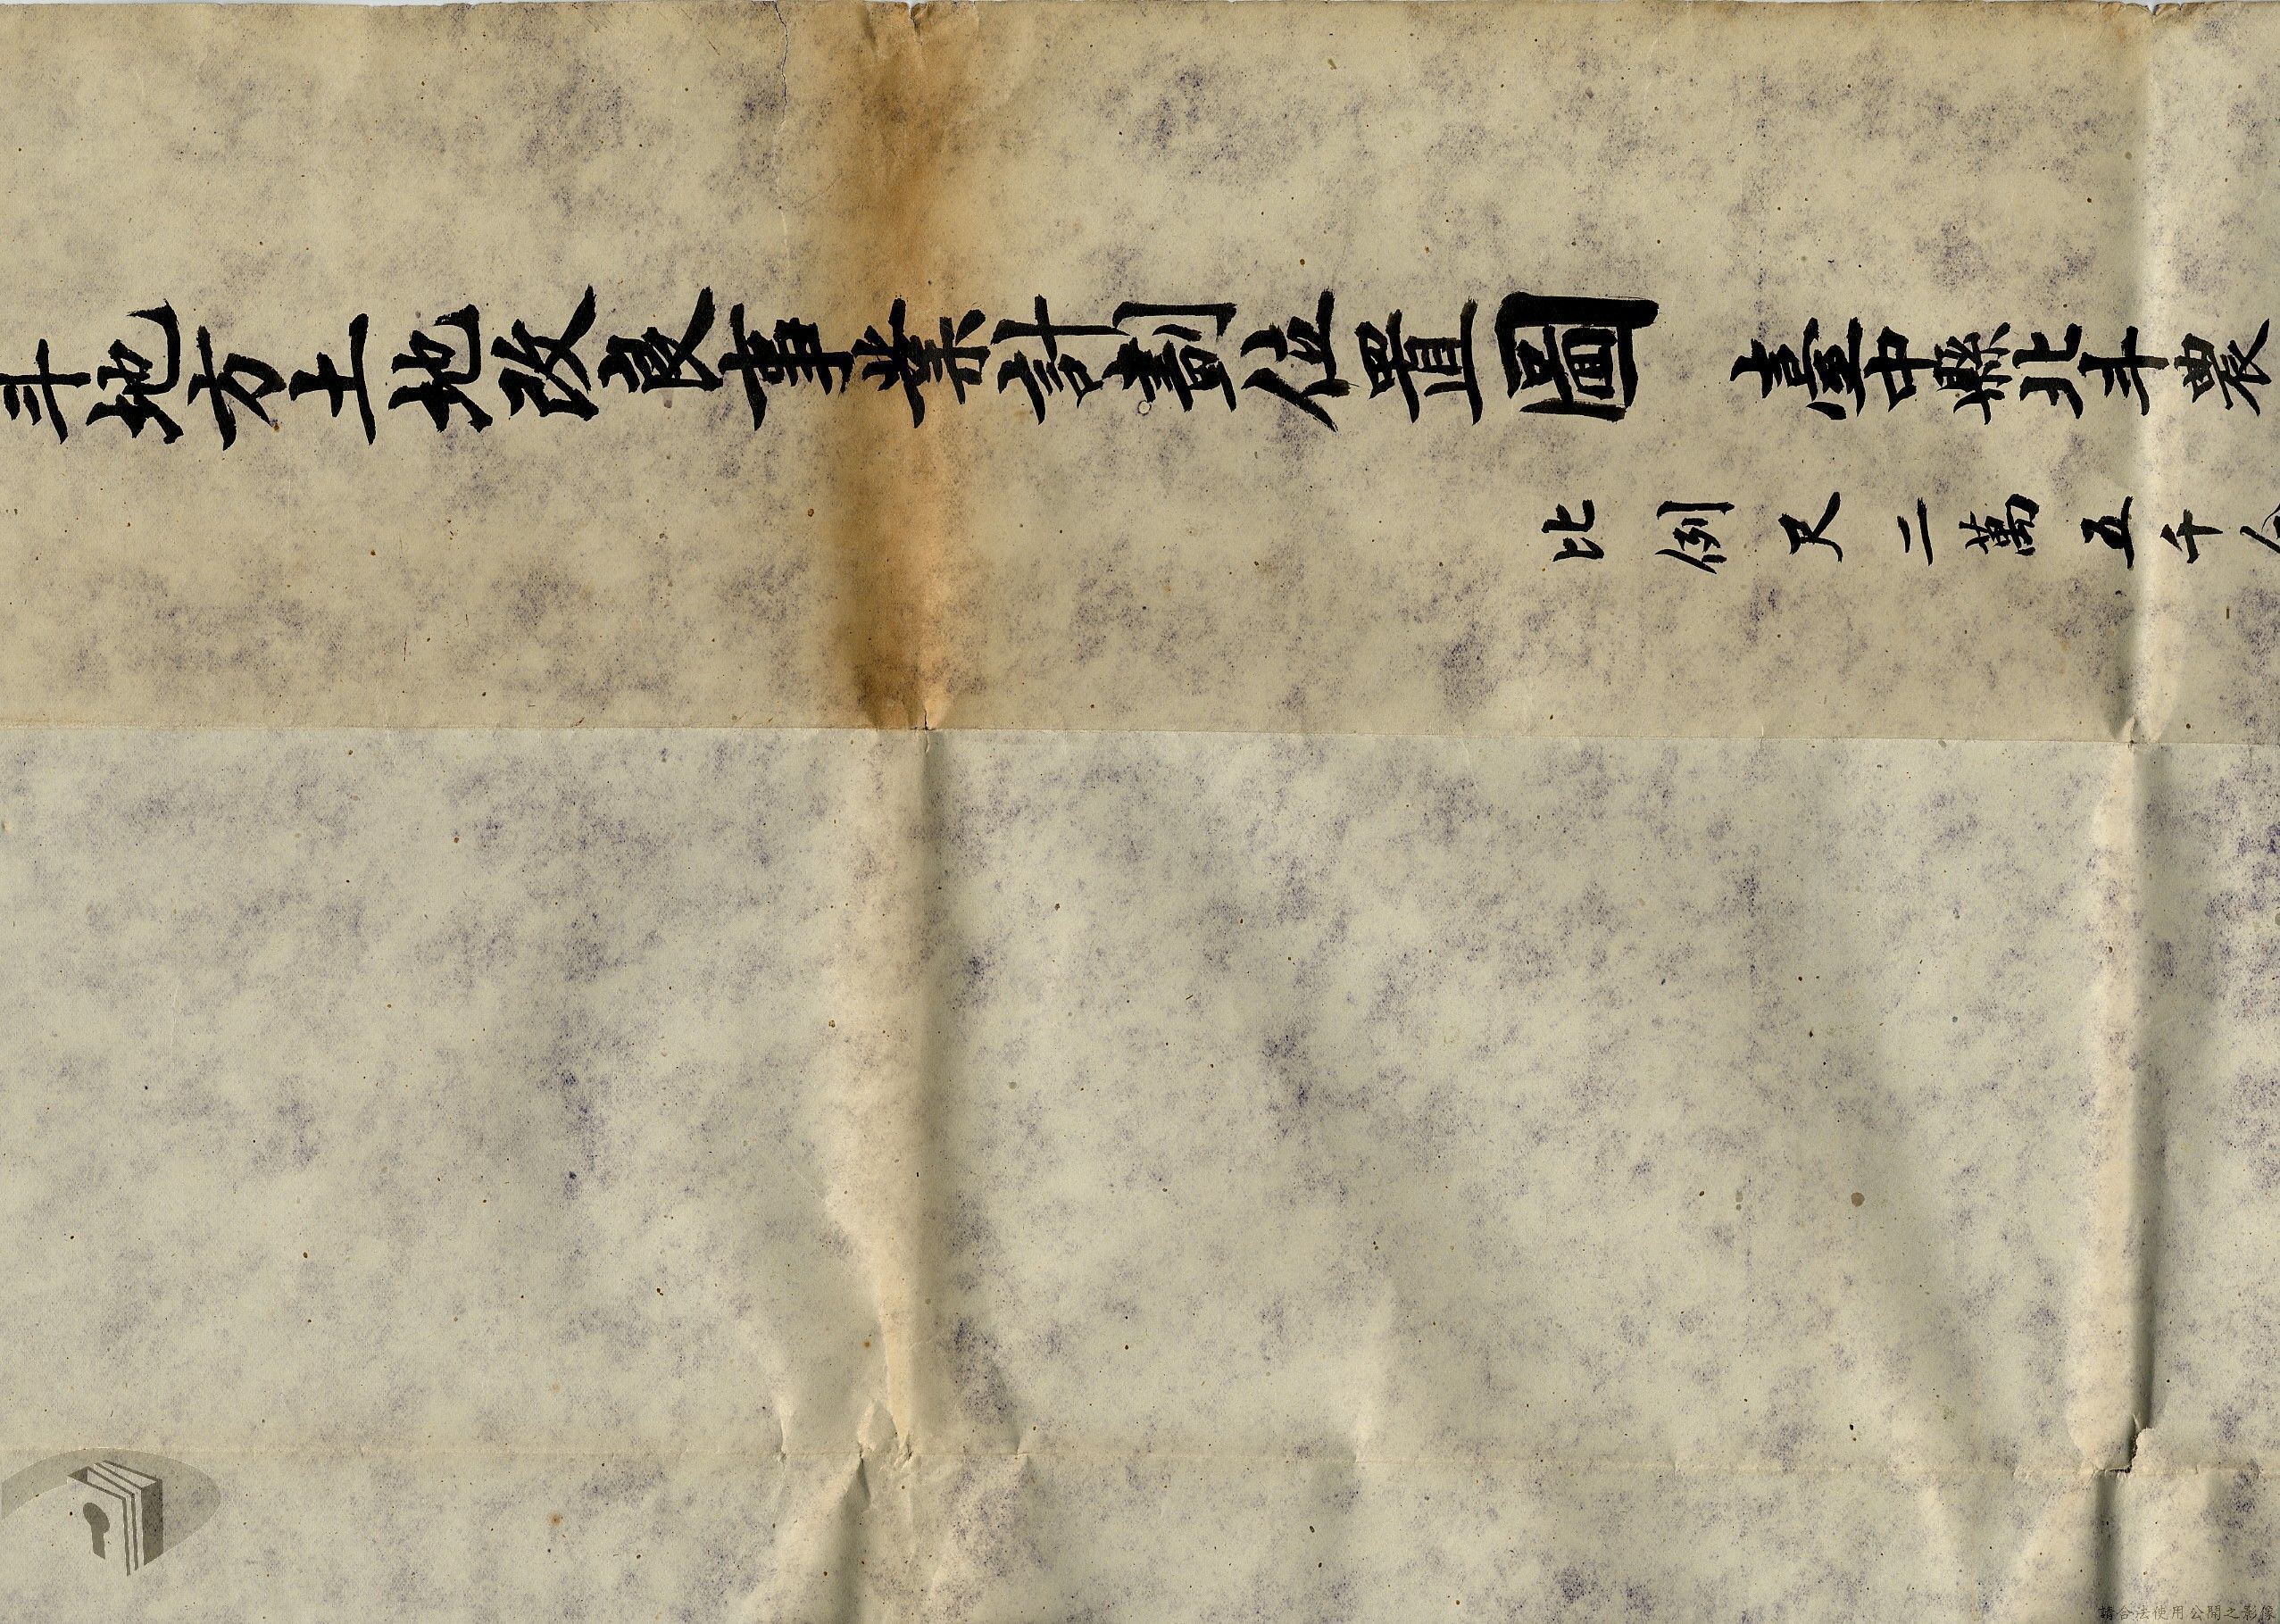 斗地方土地改良事業計劃位置圖 臺中縣北斗農
比例尺二萬五千分
請合法使用公開之影像